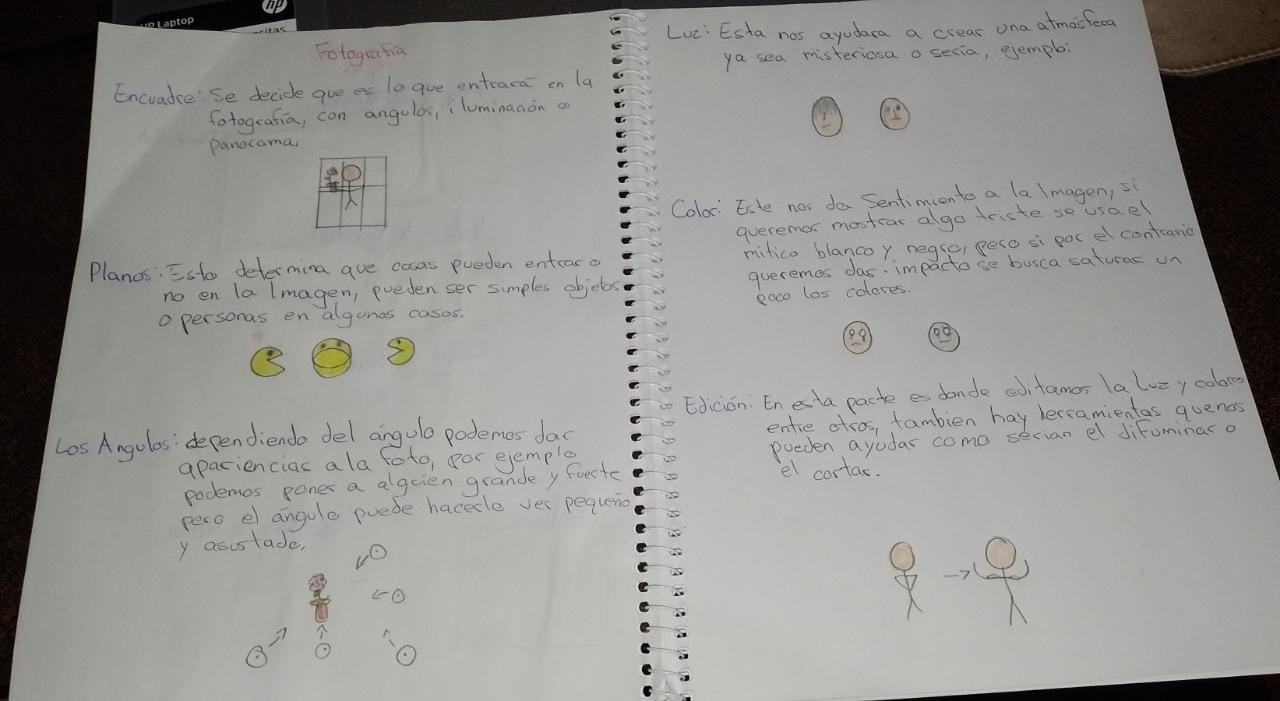 hp
HP Laptop
Fotografía
Encuadre: Se decide que es lo que entrará en la
fotografía, con angulos, iluminación o
panorama,
Planos: Esto determina que cosas pueden entrar o
no en la Imagen, pueden ser simples objetos
o personas en algunos casos.
Los Angulos: dependiendo del ángulo podemos dar
apariencias a la foto, por ejemplo
podemos poner a alguien grande y fuerte
pero el ángulo puede hacerle ver pequeño
y asustado.
Luz: Esta nos ayudara a crear una atmósfera
ya sea misteriosa o seria, ejemplo:
Color: Este nos da Sentimiento a la Imagen, si
queremos mostrar algo triste se usa el
mitico blanco y negro, pero si por el contrario
queremos dar impacto se busca saturar un
poco los colores.
Edición: En esta parte es donde editamos la Luz y colores
entre otros, tambien hay herramientas que nos
pueden ayudar como serian el difuminar o
el cortar.